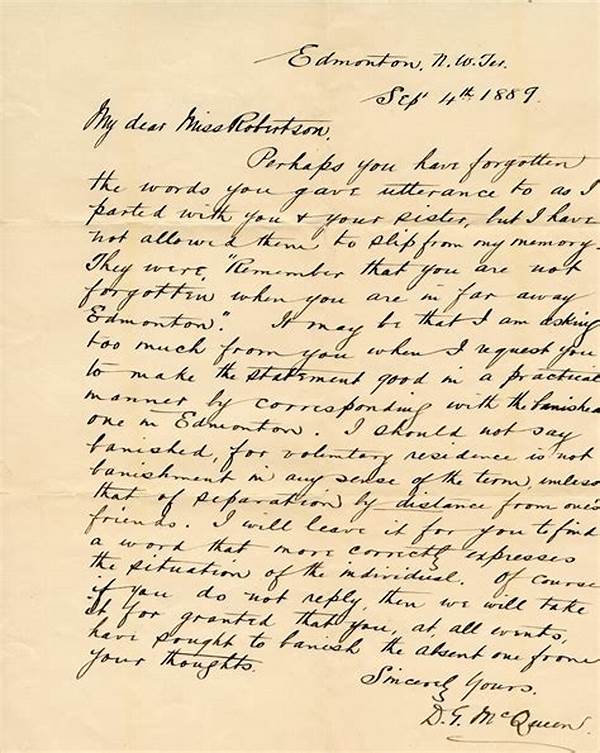 Edmonton, N.W.Ter.
Sep' 4th 1889.
My dear Miss Robertson,
Perhaps you have forgotten
the words you gave utterance to as I
parted with you & your sister, but I have
not allowed them to slip from my memory.
They were, "Remember that you are not
forgotten when you are in far away
Edmonton." It may be that I am asking
too much from you when I request you
to make the statement good in a practical
manner by corresponding with the banished
one in Edmonton. I should not say
banished, for voluntary residence is not
banishment in any sense of the term, unless
that of separation by distance from one's
friends. I will leave it for you to find
a word that more correctly expresses
the situation of the individual. Of course
if you do not reply, then we will take
it for granted that you, at, all events,
have sought to banish the absent one from
your thoughts.
Sincerely Yours.
D. G. McQueen.